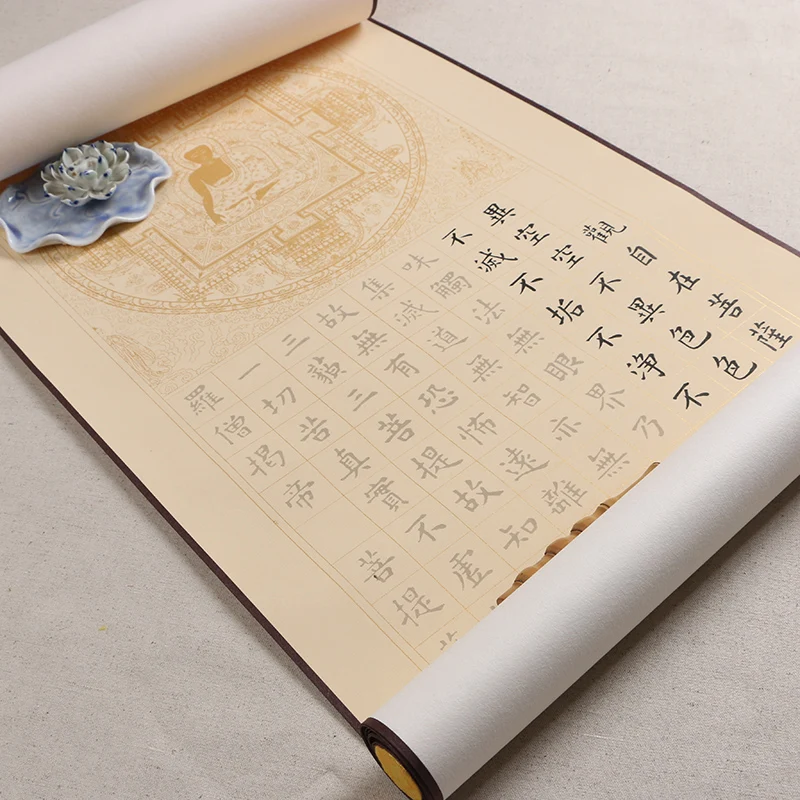 觀自在菩薩
異空空不異色色
不滅不垢不淨不
味觸法無眼界乃
集滅道無智亦無
故無有恐怖遠離
三藐三菩提故知
一切苦真實不虛
羅僧揭帝 菩提